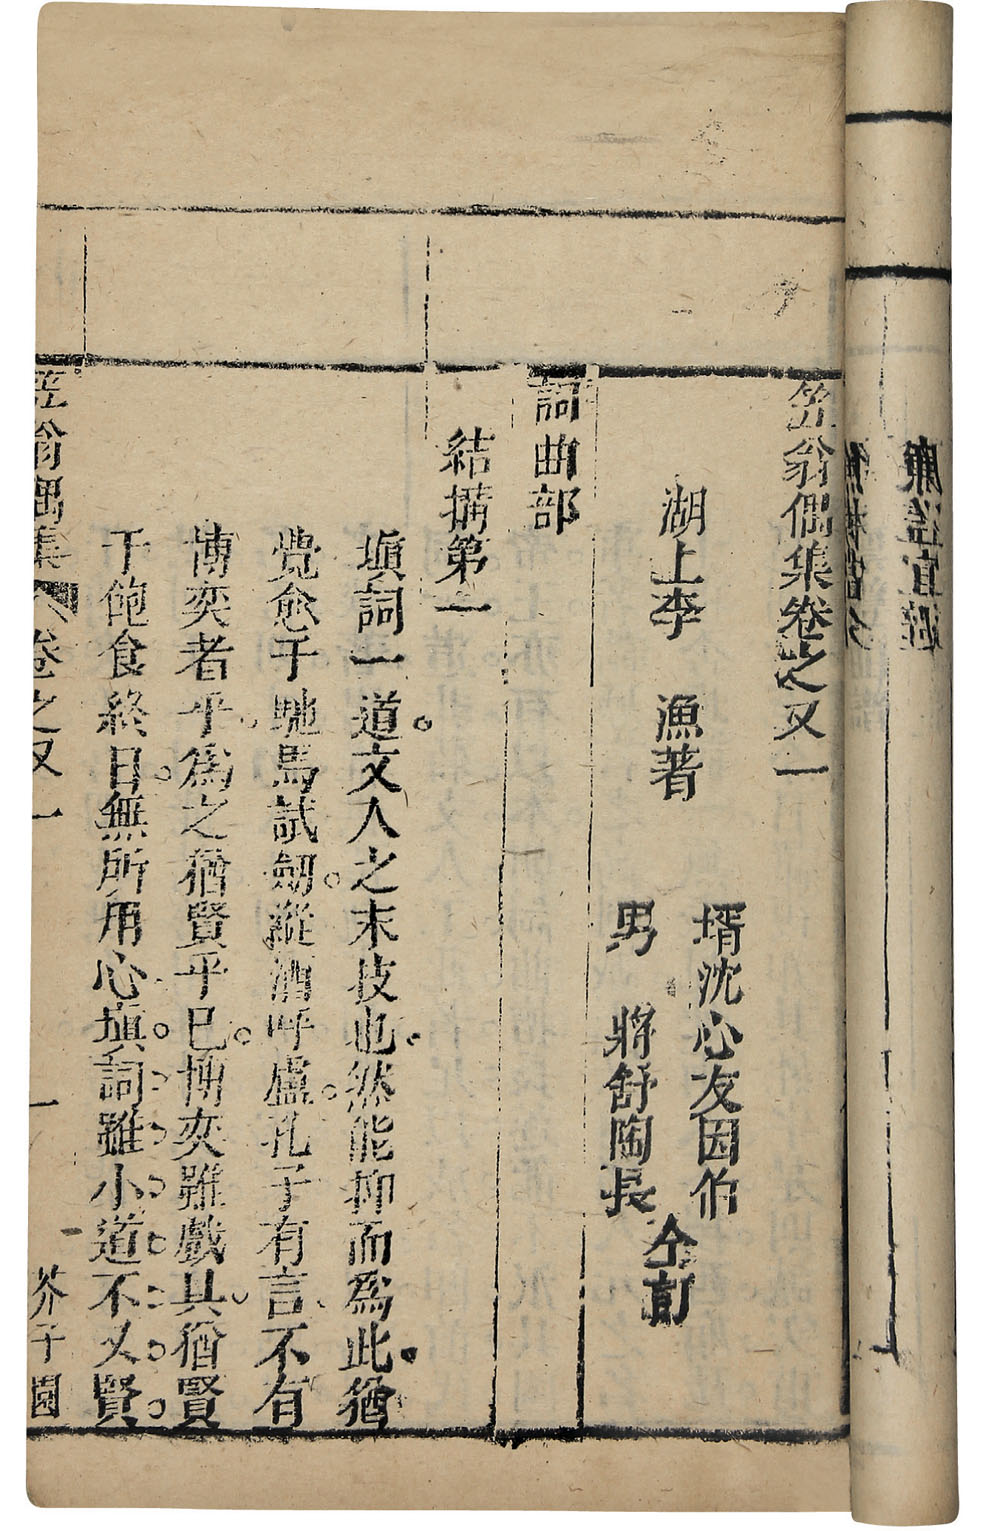 笠翁偶集卷之又一
湖上李　漁著
壻沈心友因伯
男　將舒陶長
仝訂
詞曲部
結搆第一
塡詞一道。文人之末技也。然能抑而為此。猶
覺愈于馳馬試劒。縱酒呼盧。孔子有言。不有
博奕者乎。爲之猶賢乎已。博奕雖戲具。猶賢
于飽食終日。無所用心。塡詞雖小道。不又賢
笠翁偶集
卷之又一
一
芥子園